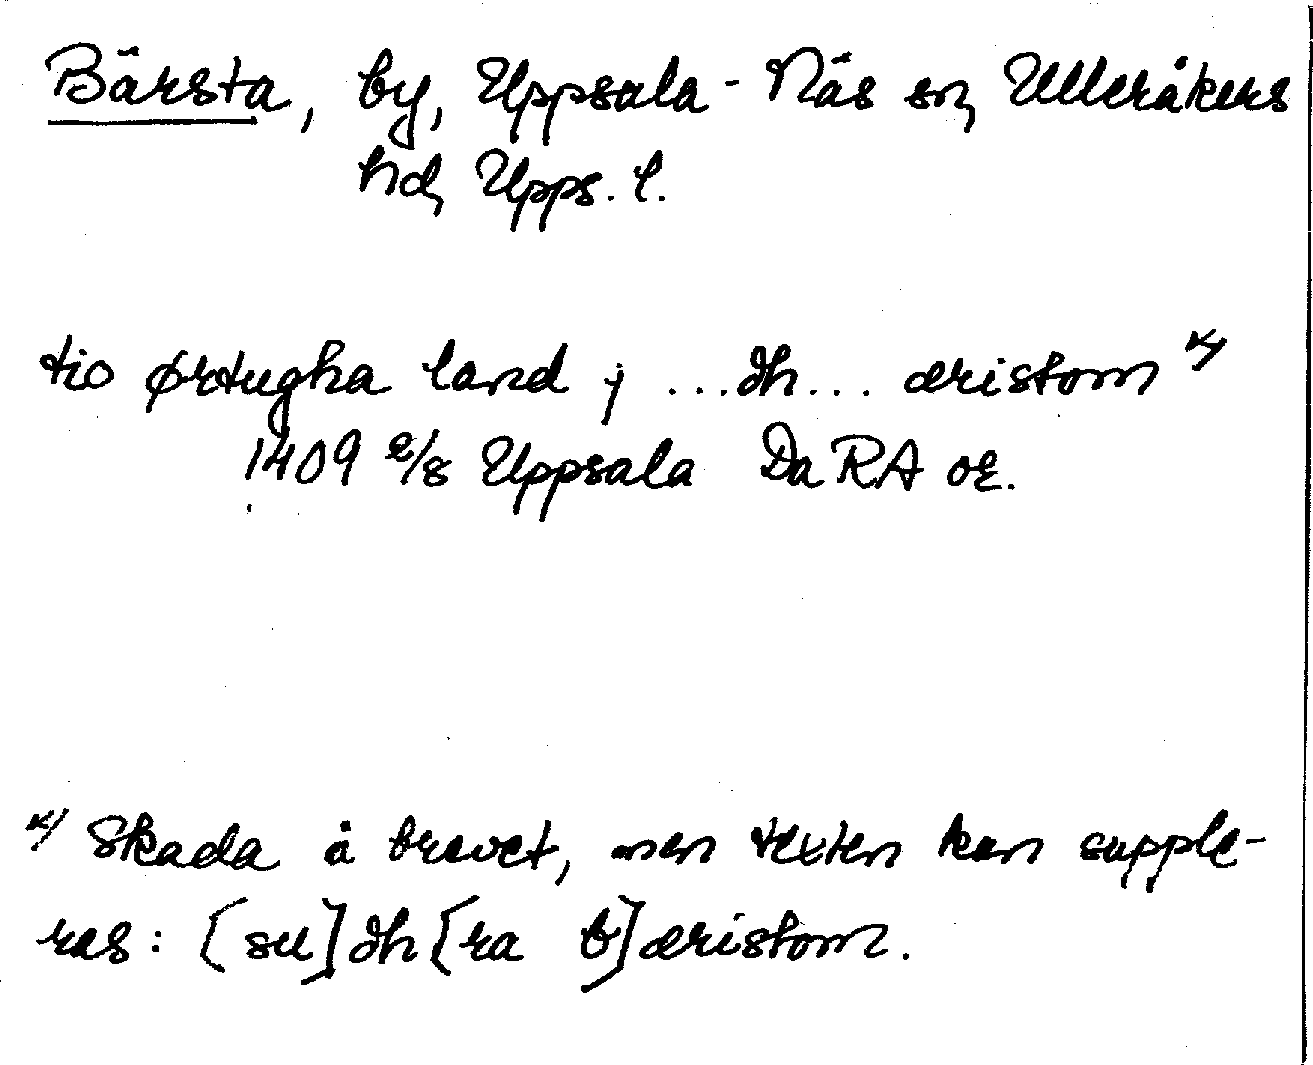 Bärsta, by, Uppsala-Näs sn, Ulleråkers
hd, Upps. l.
tio ørtugha land j ...dh... æristom x/
1409 2/8 Uppsala Da RA or.
x/ Skada å brevet, men texten kan supple-
ras: [su]dh[ra b]æristom.